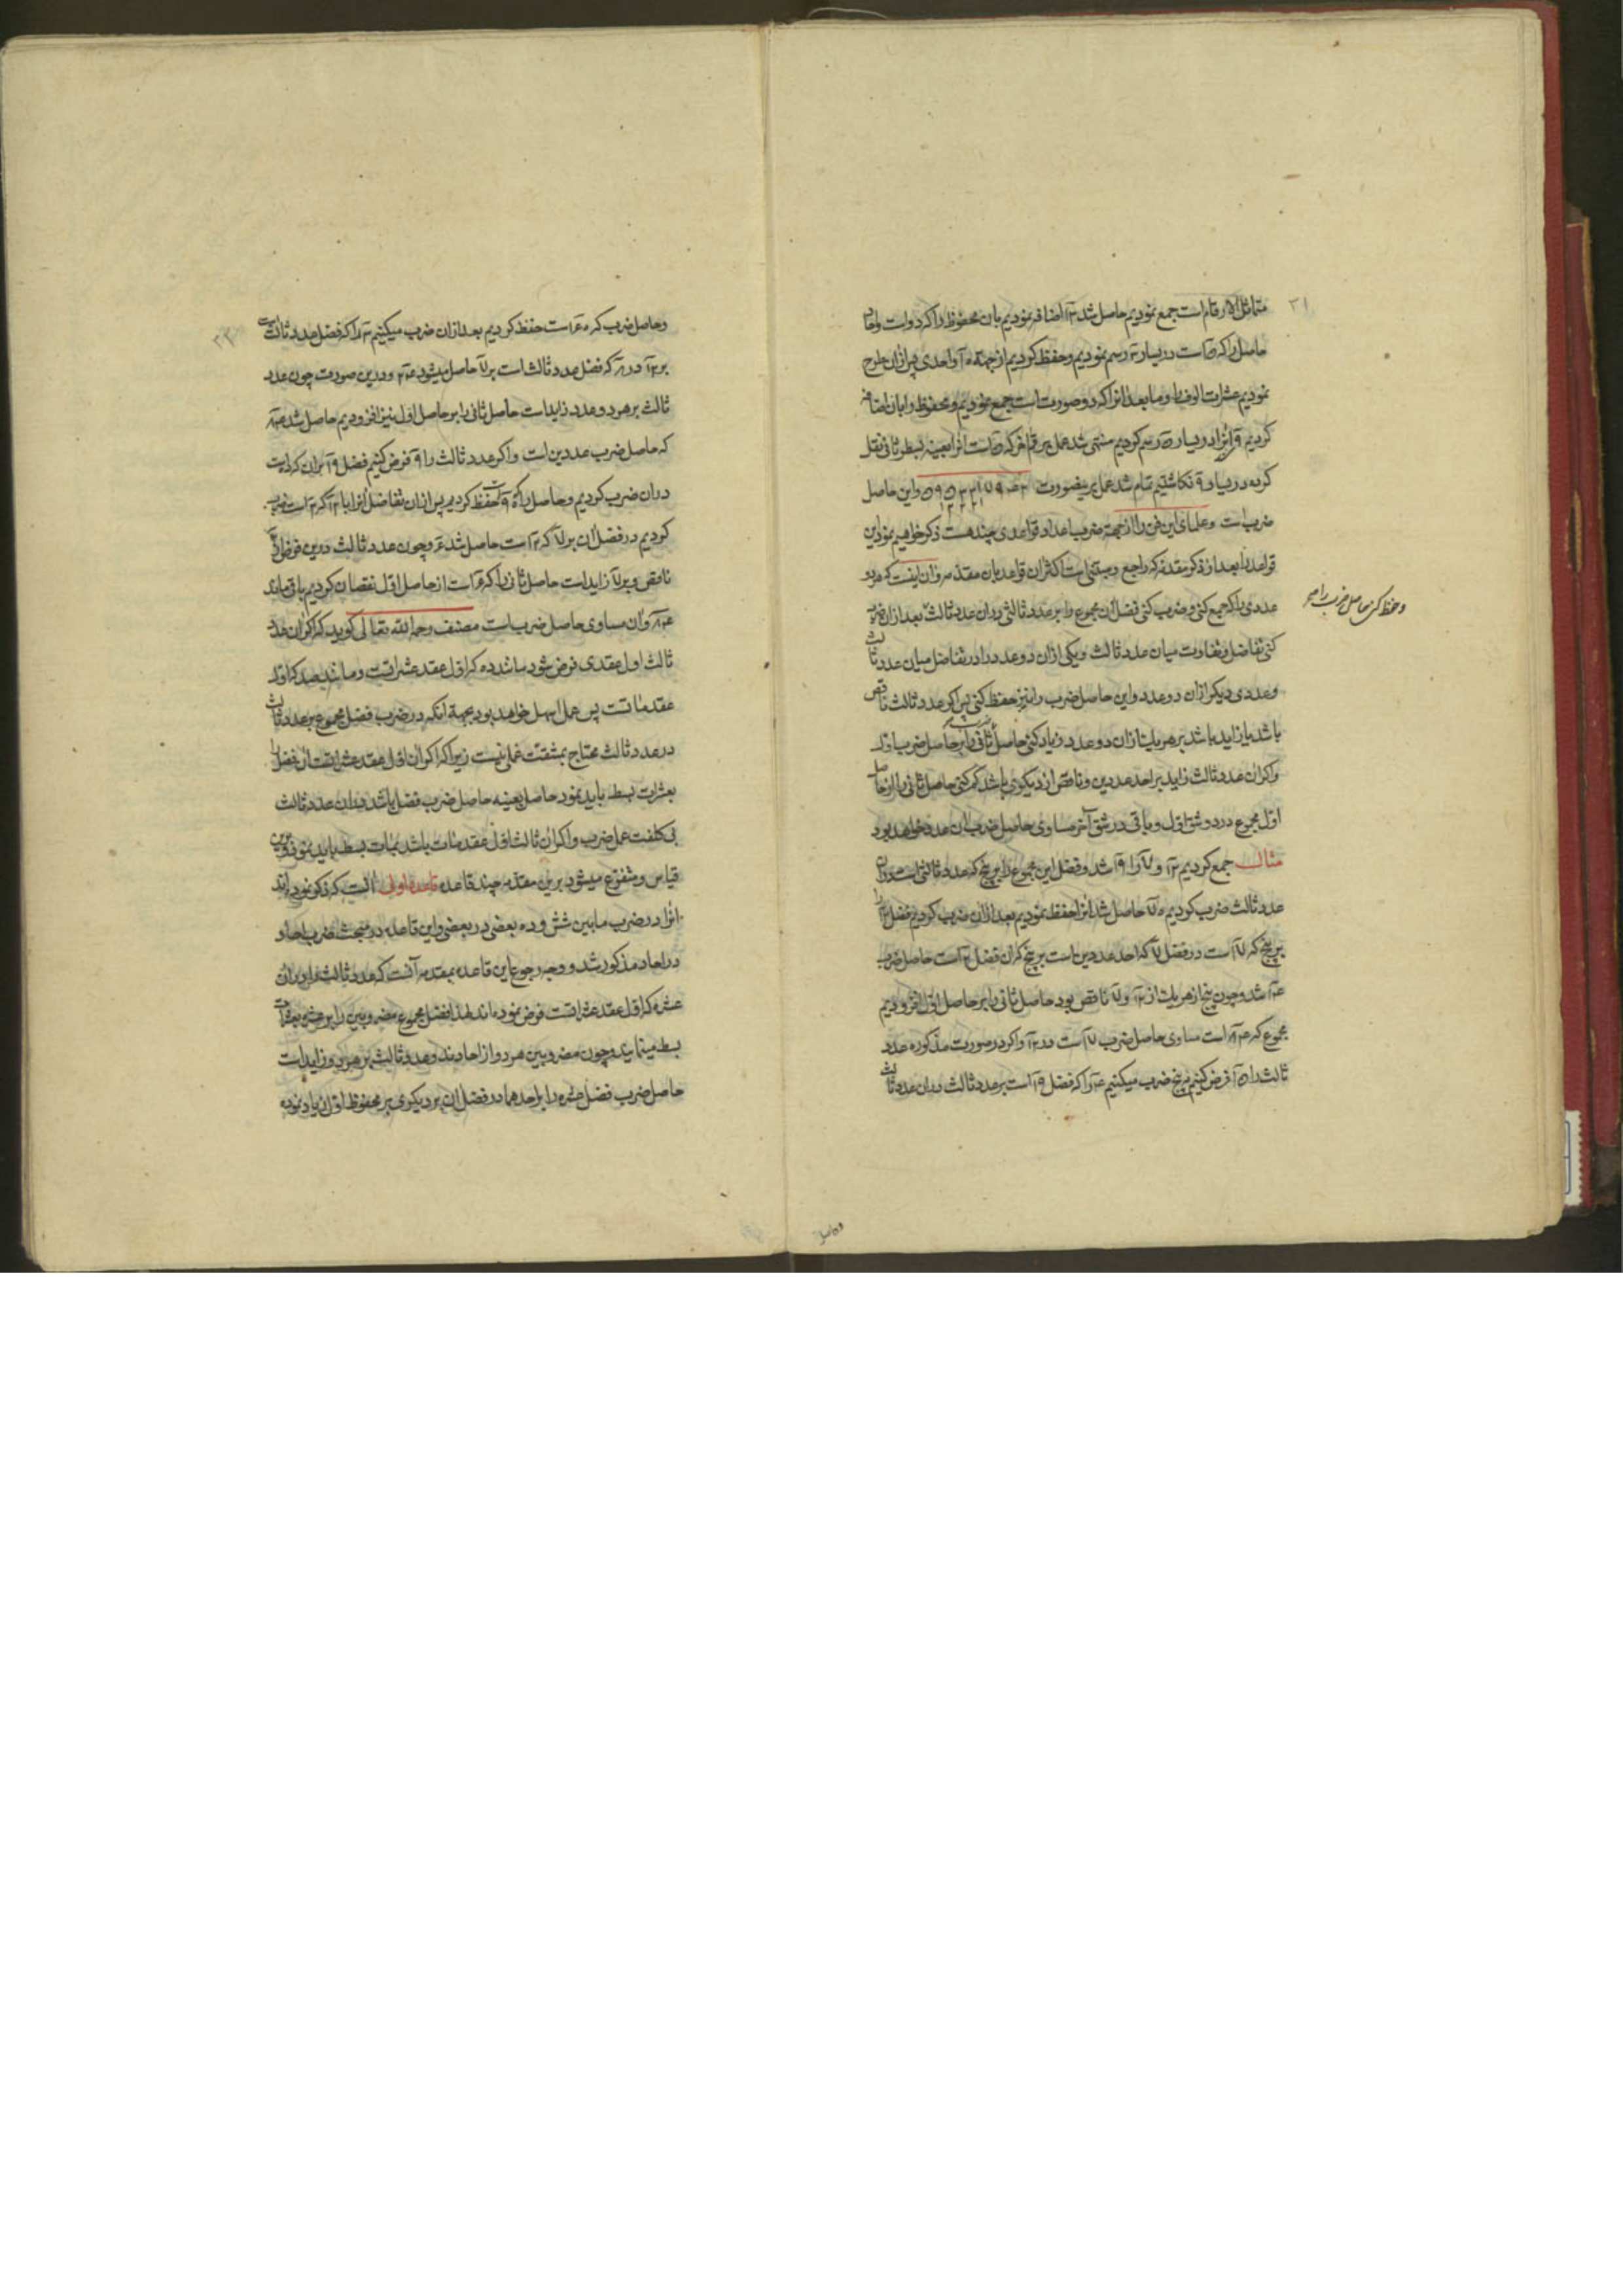 ۳۱
متماثل الارقام است جمع نمودیم حاصل شد ۱۳ اضافه نمودیم بان محفوظ را که دو است واحاد
حاصل را که ۵ است در یسار ۳ رسم نمودیم و حفظ کردیم از جهته ۱۰ واحدی پس ازان طرح
نمودیم عشرات الوف را و ما بعد انرا که دو صورت است جمع نمودیم و محفوظ را بان اضافه
کردیم ۹ انرا در یسار ۵ رسم کردیم منتهی شد عمل بر رقم اخر که ۵ است انرا بعینه بسطر ثانی نقل
کرده در یسار ۹ نکاشتیم تمام شد عمل برینصورت واین حاصل
ضرب است و علمای این فن را از جهته ضرب اعداد قواعدی چند هست ذکر خواهیم نمود این
قواعد را بعد از ذکر مقدمه که راجع و مبتنی است اکثر ان قواعد بان مقدمه و ان اینست که هر دو
عددی را که جمع کنی و ضرب کنی فضل ان مجموع را بر عدد ثالثی در ان عدد ثالث بعد ازان ضرب
وحفظ کنی حاصل ضرب را
کنی تفاضل و تفاوت میان عدد ثالث و یکی ازان دو عدد را در تفاضل میان عدد ثالث
و عددی دیکر ازان دو عدد و این حاصل ضرب را نیز حفظ کنی پس اکر عدد ثالث ناقص
باشد یا زاید باشد بر هر یک ازان دو عدد زیاد کنی حاصل ضرب ثانی را بر حاصل ضرب اول
و اکر ان عدد ثالث زاید بر احد عددین و ناقص از دیکری باشد کم کنی حاصل ثانی را از حاصل
اول مجموع در دو شق اول و باقی در شق آخر مساوی حاصل ضرب ان عدد خواهد بود
مثال جمع کردیم ۱۲ و ۷ را ۱۹ شد و فضل این مجموع را بر پنج که عدد ثالثی است در ان
عدد ثالث ضرب کردیم ۷۰ حاصل شد انرا حفظ نمودیم بعد ازان ضرب کردیم فضل ۱۲ را
بر پنج که ۷ است در فضل ۷ که احد عددین است بر پنج که ان فضل ۲ است حاصل ضرب
۱۴ شد و چون پنج از هر یک از ۱۲ و ۷ ناقص بود حاصل ثانی را بر حاصل اول افزودیم
مجموع که ۸۴ است مساوی حاصل ضرب ۷ است در ۱۲ و اکر در صورت مذکوره عدد
ثالث را ۱۵ فرض کنیم ضرب میکنیم ۴ را که فضل ۱۹ است بر عدد ثالث در ان عدد ثالث
وحاصل
۳۲
وحاصل ضرب که ۶۰ است حفظ کردیم بعد ازان ضرب میکنیم ۳ را که فضل عدد ثالث است
بر ۱۲ در ۸ که فضل عدد ثالث است بر ۷ حاصل میشود ۲۴ و درین صورت چون عدد
ثالث بر هر دو عدد زاید است حاصل ثانی را بر حاصل اول نیز افزودیم حاصل شد ۸۴
که حاصل ضرب عددین است و اکر عدد ثالث را ۹ فرض کنیم فضل ۱۹ بران که ۱۰ است
دران ضرب کردیم و حاصل را که ۹۰ است حفظ کردیم پس ازان تفاضل انرا با ۱۲ که ۳ است ضرب
کردیم در فضل ان بر ۷ که ۲ است حاصل شد ۶ و چون عدد ثالث درین فرض از ۱۲
ناقص و بر ۷ زاید است حاصل ثانی را که ۶ است از حاصل اول نقصان کردیم باقی ماند
۸۴ و ان مساوی حاصل ضرب است مصنف رحمه الله تعالی کوید که اکر ان عدد
ثالث اول عقدی فرض شود مانند ده که اول عقد عشراتست و مانند صد که اول
عقد مئاتست پس عمل اسهل خواهد بود بجهة آنکه در ضرب فضل مجموع بر عدد ثالث
در عدد ثالث محتاج بمشقت عملی نیست زیرا که اکر ان اول عقد عشراتست ان فضل را
بعشرات بسط باید نمود حاصل بعینه حاصل ضرب فضل باشد در ان عدد ثالث
بی کلفت عمل ضرب و اکر ان ثالث اول عقد مئات باشد بمئات بسط باید نمود و برین
قیاس و متفرع میشود برین مقدمه چند قاعده قاعده اولی انست که ذکر نموده اند
انرا در ضرب ما بین شش و ده بعضی در بعضی و این قاعده در مبحث ضرب احاد
در احاد مذکور شد و وجه رجوع این قاعده بمقدمه آنست که عدد ثالث را در ان
عشره که اول عقد عشراتست فرض نموده اند لهذا فضل مجموع مضروبین را بر عشره بعشرات
بسط مینمایند و چون مضروبین هر دو از احادند و عدد ثالث بر هر دو زاید است
حاصل ضرب فضل عشره را بر احدهما در فضل ان بر دیکری بر محفوظ اول زیاد نموده